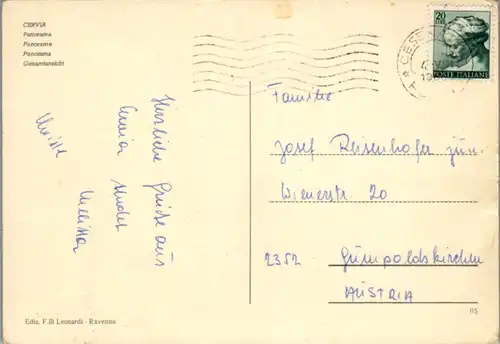 CERVIA
Panorama
Panorama
Panorama
Gesamtansicht
20
POSTE ITALIANE
Herzliche Grüße aus
Cervia sendet
Familie
Josef Reisenhofer jun.
Wienerstr. 20
2352 Gumpoldskirchen
AUSTRIA
Ediz. F.lli Leonardi - Ravenna
115